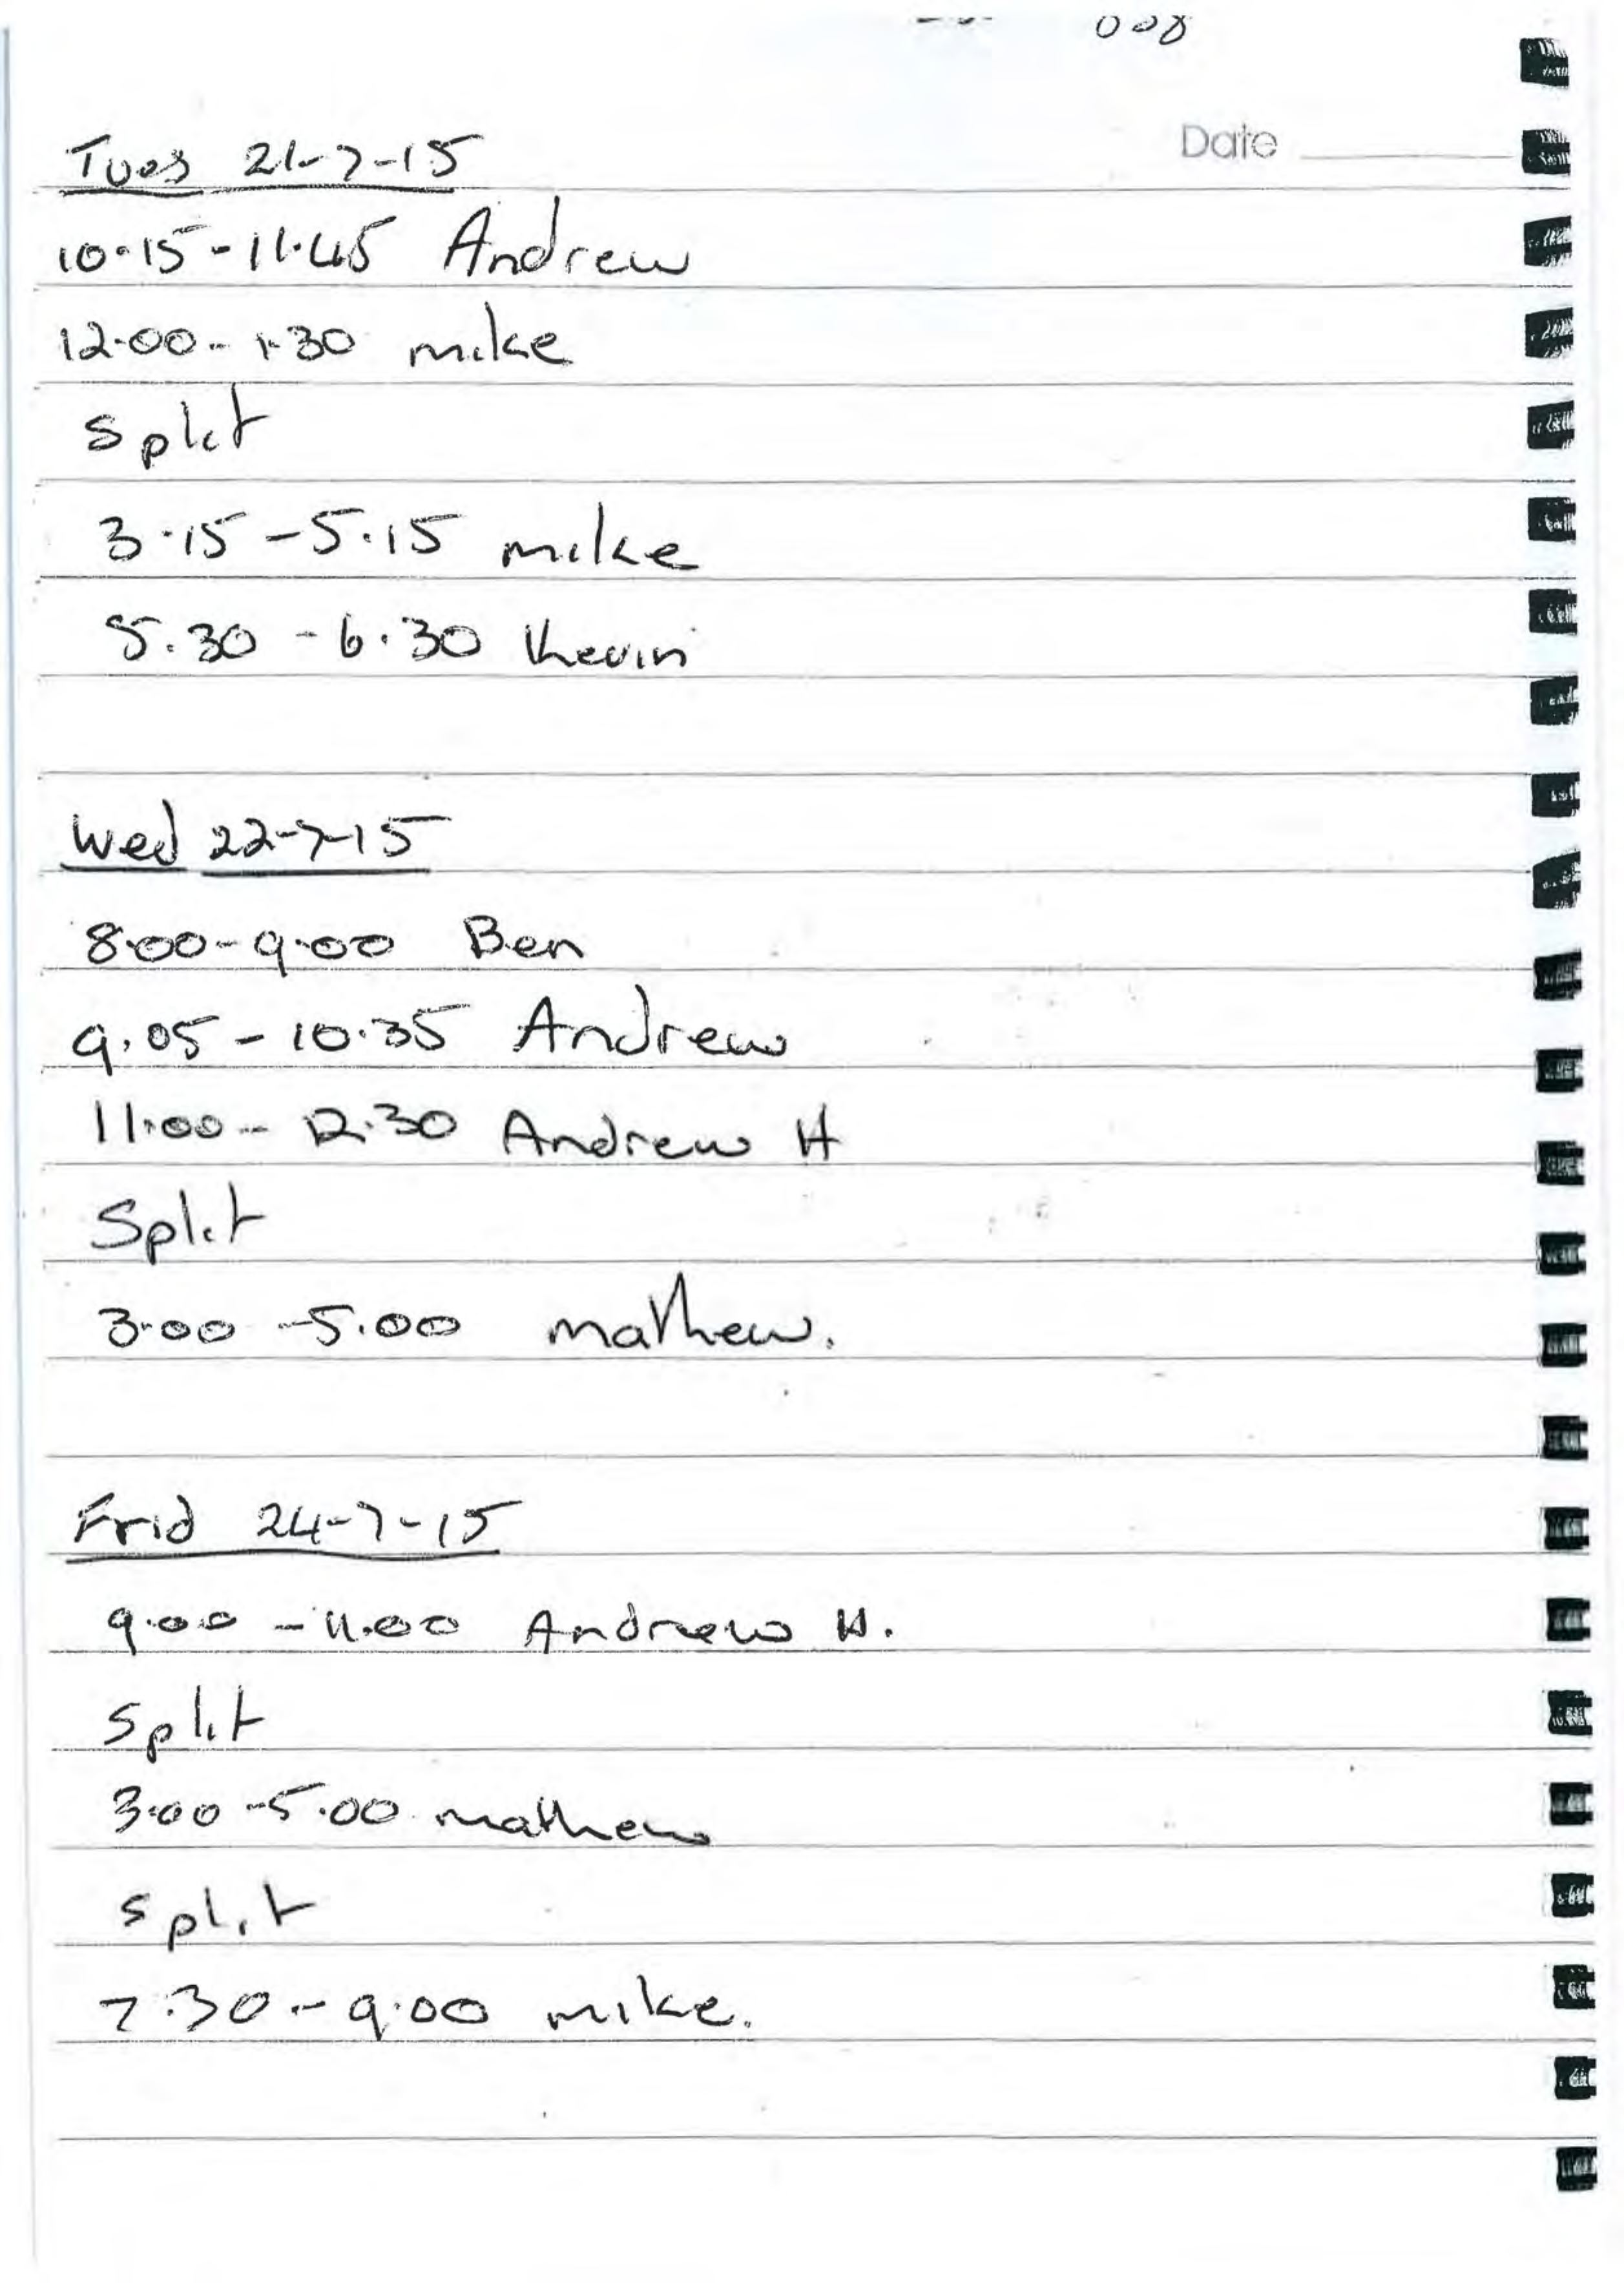 008
Date
Tues 21-7-15
10.15-11.45 Andrew
12.00-1.30 mike
split
3.15-5.15 mike
5.30-6.30 Kevin
Wed 22-7-15
8.00-9.00 Ben
9.05-10.35 Andrew
11.00-12.30 Andrew H
Split
3.00-5.00 mathew.
Frid 24-7-15
9.00-11.00 Andrew H.
split
3.00-5.00 mathew
split
7.30-9.00 mike.